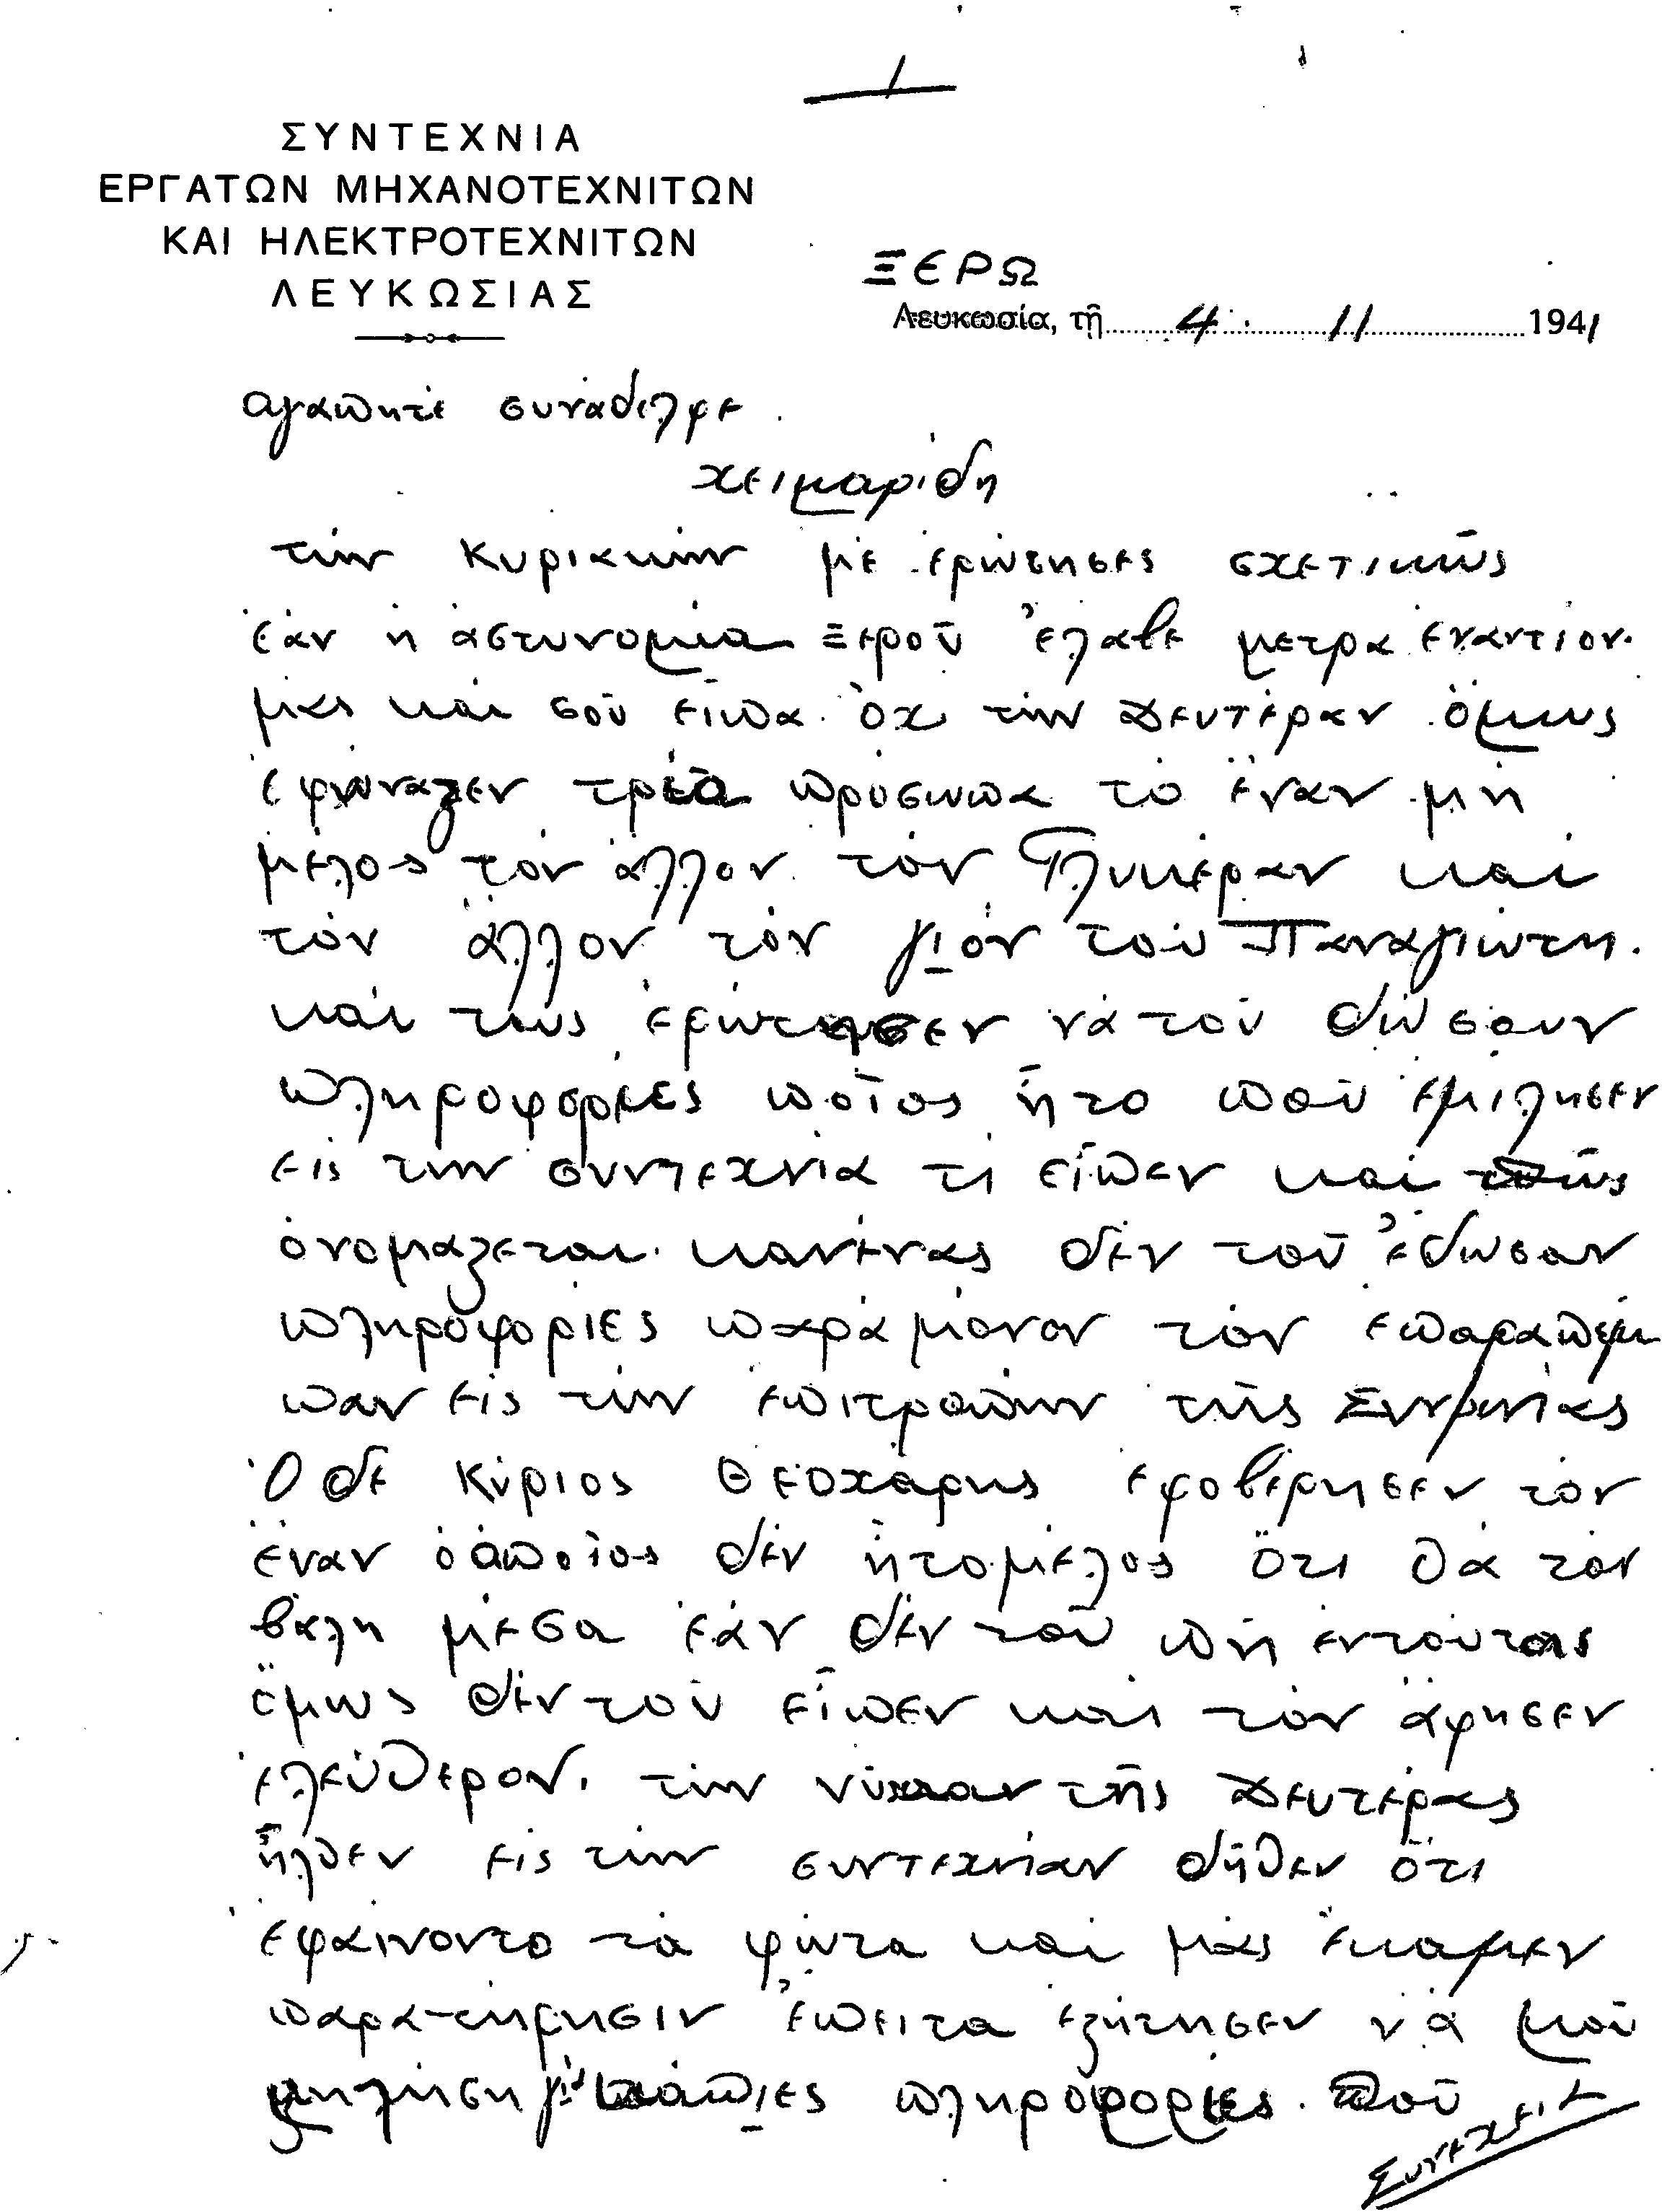 1
ΣΥΝΤΕΧΝΙΑ
ΕΡΓΑΤΩΝ ΜΗΧΑΝΟΤΕΧΝΙΤΩΝ
ΚΑΙ ΗΛΕΚΤΡΟΤΕΧΝΙΤΩΝ
ΛΕΥΚΩΣΙΑΣ
ΞΕΡΩ
Λευκωσία, τῇ 4 11 1941
αγαπητέ συνάδελφε.
χειμαρίδη
τήν Κυριακήν μέ ἐρώτησες σχετικῶς
ἐάν ἡ ἀστυνομία Ξεροῦ ἔλαβε μετρα ἐναντίον
μας καί σοῦ εἶπα ὄχι τήν Δευτέραν ὅμως
ἐφώναξεν τρία πρόσωπα τό ἕναν μή
μέλος τόν ἄλλον τόν Γλυκέραν καί
τόν ἄλλον τόν γιόν τοῦ Παναγιώτη.
καί τούς ἐρώτησεν νά τοῦ δώσουν
πληροφορίες ποῖος ἦτο πού ἐμίλησεν
εἰς τήν συντεχνία τί εἶπεν καί πῶς
ὀνομάζεται κανένας δέν τοῦ ἔδωσαν
πληροφορίες παρά μόνον τόν επαραπέμ
παν εἰς τήν ἐπιτροπήν τῆς Συντεχνίας
Ὁ δέ Κύριος Θεοχάρης ἐφοβέρησεν τόν
ἕναν ὁ ὁποῖος δέν ἦτο μέλος ὅτι θά τόν
βάλη μέσα ἐάν δέν τοῦ πῆ ἐντούτοις
ὅμως δέν τοῦ εἶπεν καί τόν ἄφησεν
ἐλεύθερον. τήν νύκταν τῆς Δευτέρας
ἦλθεν εἰς τήν συντεχνίαν δῆθεν ὅτι
ἐφαίνοντο τά φῶτα καί μᾶς ἔκαμεν
παρατήρησιν ἔπειτα ἐζήτησεν νά μοῦ
μηλήση γιά κάπιες πληροφορίες πού
Συνεχεια